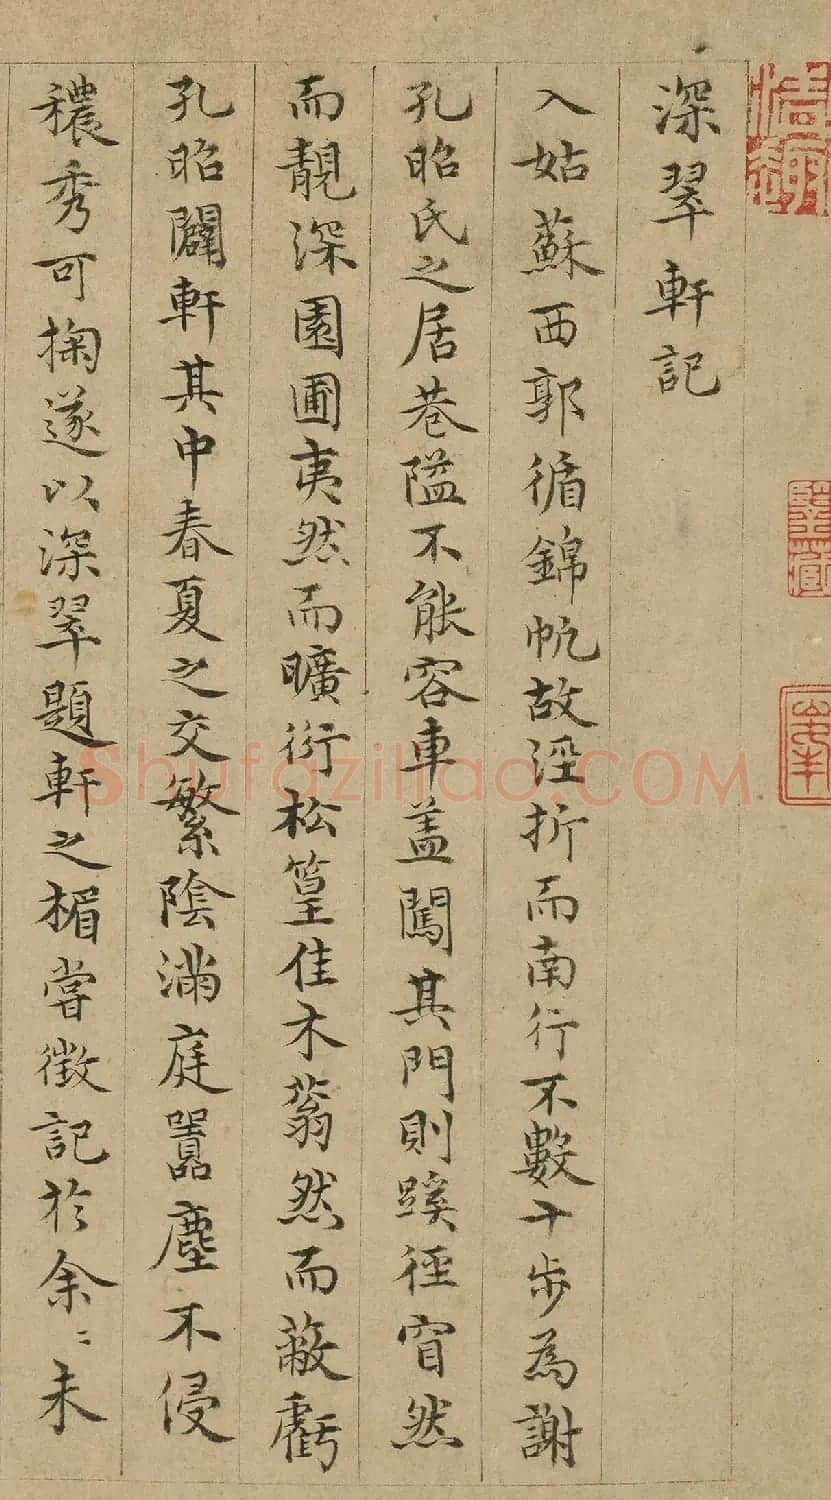 深翠軒記
入姑蘇西郭循錦帆故涇折而南行不數十步為謝
孔昭氏之居巷隘不能容車蓋闖其門則蹊徑窅然
而靚深園圃夷然而曠衍松篁佳木蓊然而蔽虧
孔昭闢軒其中春夏之交繁陰滿庭囂塵不侵
穠秀可掬遂以深翠題軒之楣嘗徵記於余〻未
shufaziliao.COM